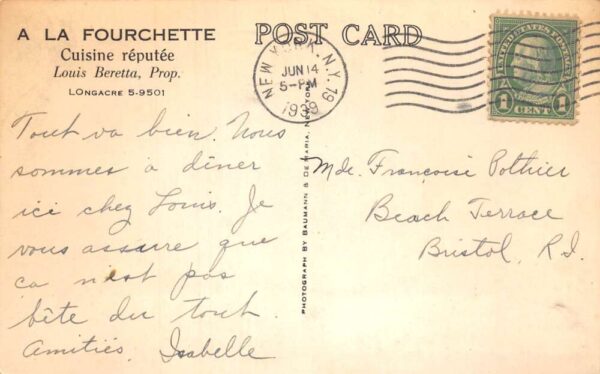 A LA FOURCHETTE
Cuisine réputée
Louis Beretta, Prop.
LONGACRE 5-9501
POST CARD
NEW YORK, N.Y. 79
JUN 14
5-PM
1939
UNITED STATES POSTAGE
1 CENT 1
Tout va bien. Nous
sommes à dîner
ici chez Louis. Je
vous assure que
ca n'est pas
bête du tout.
Amitiés, Isabelle
PHOTOGRAPH BY BAUMANN & DE MARIA, NEW YORK
Mde. Françoise Pothier
Beach Terrace
Bristol, R.I.